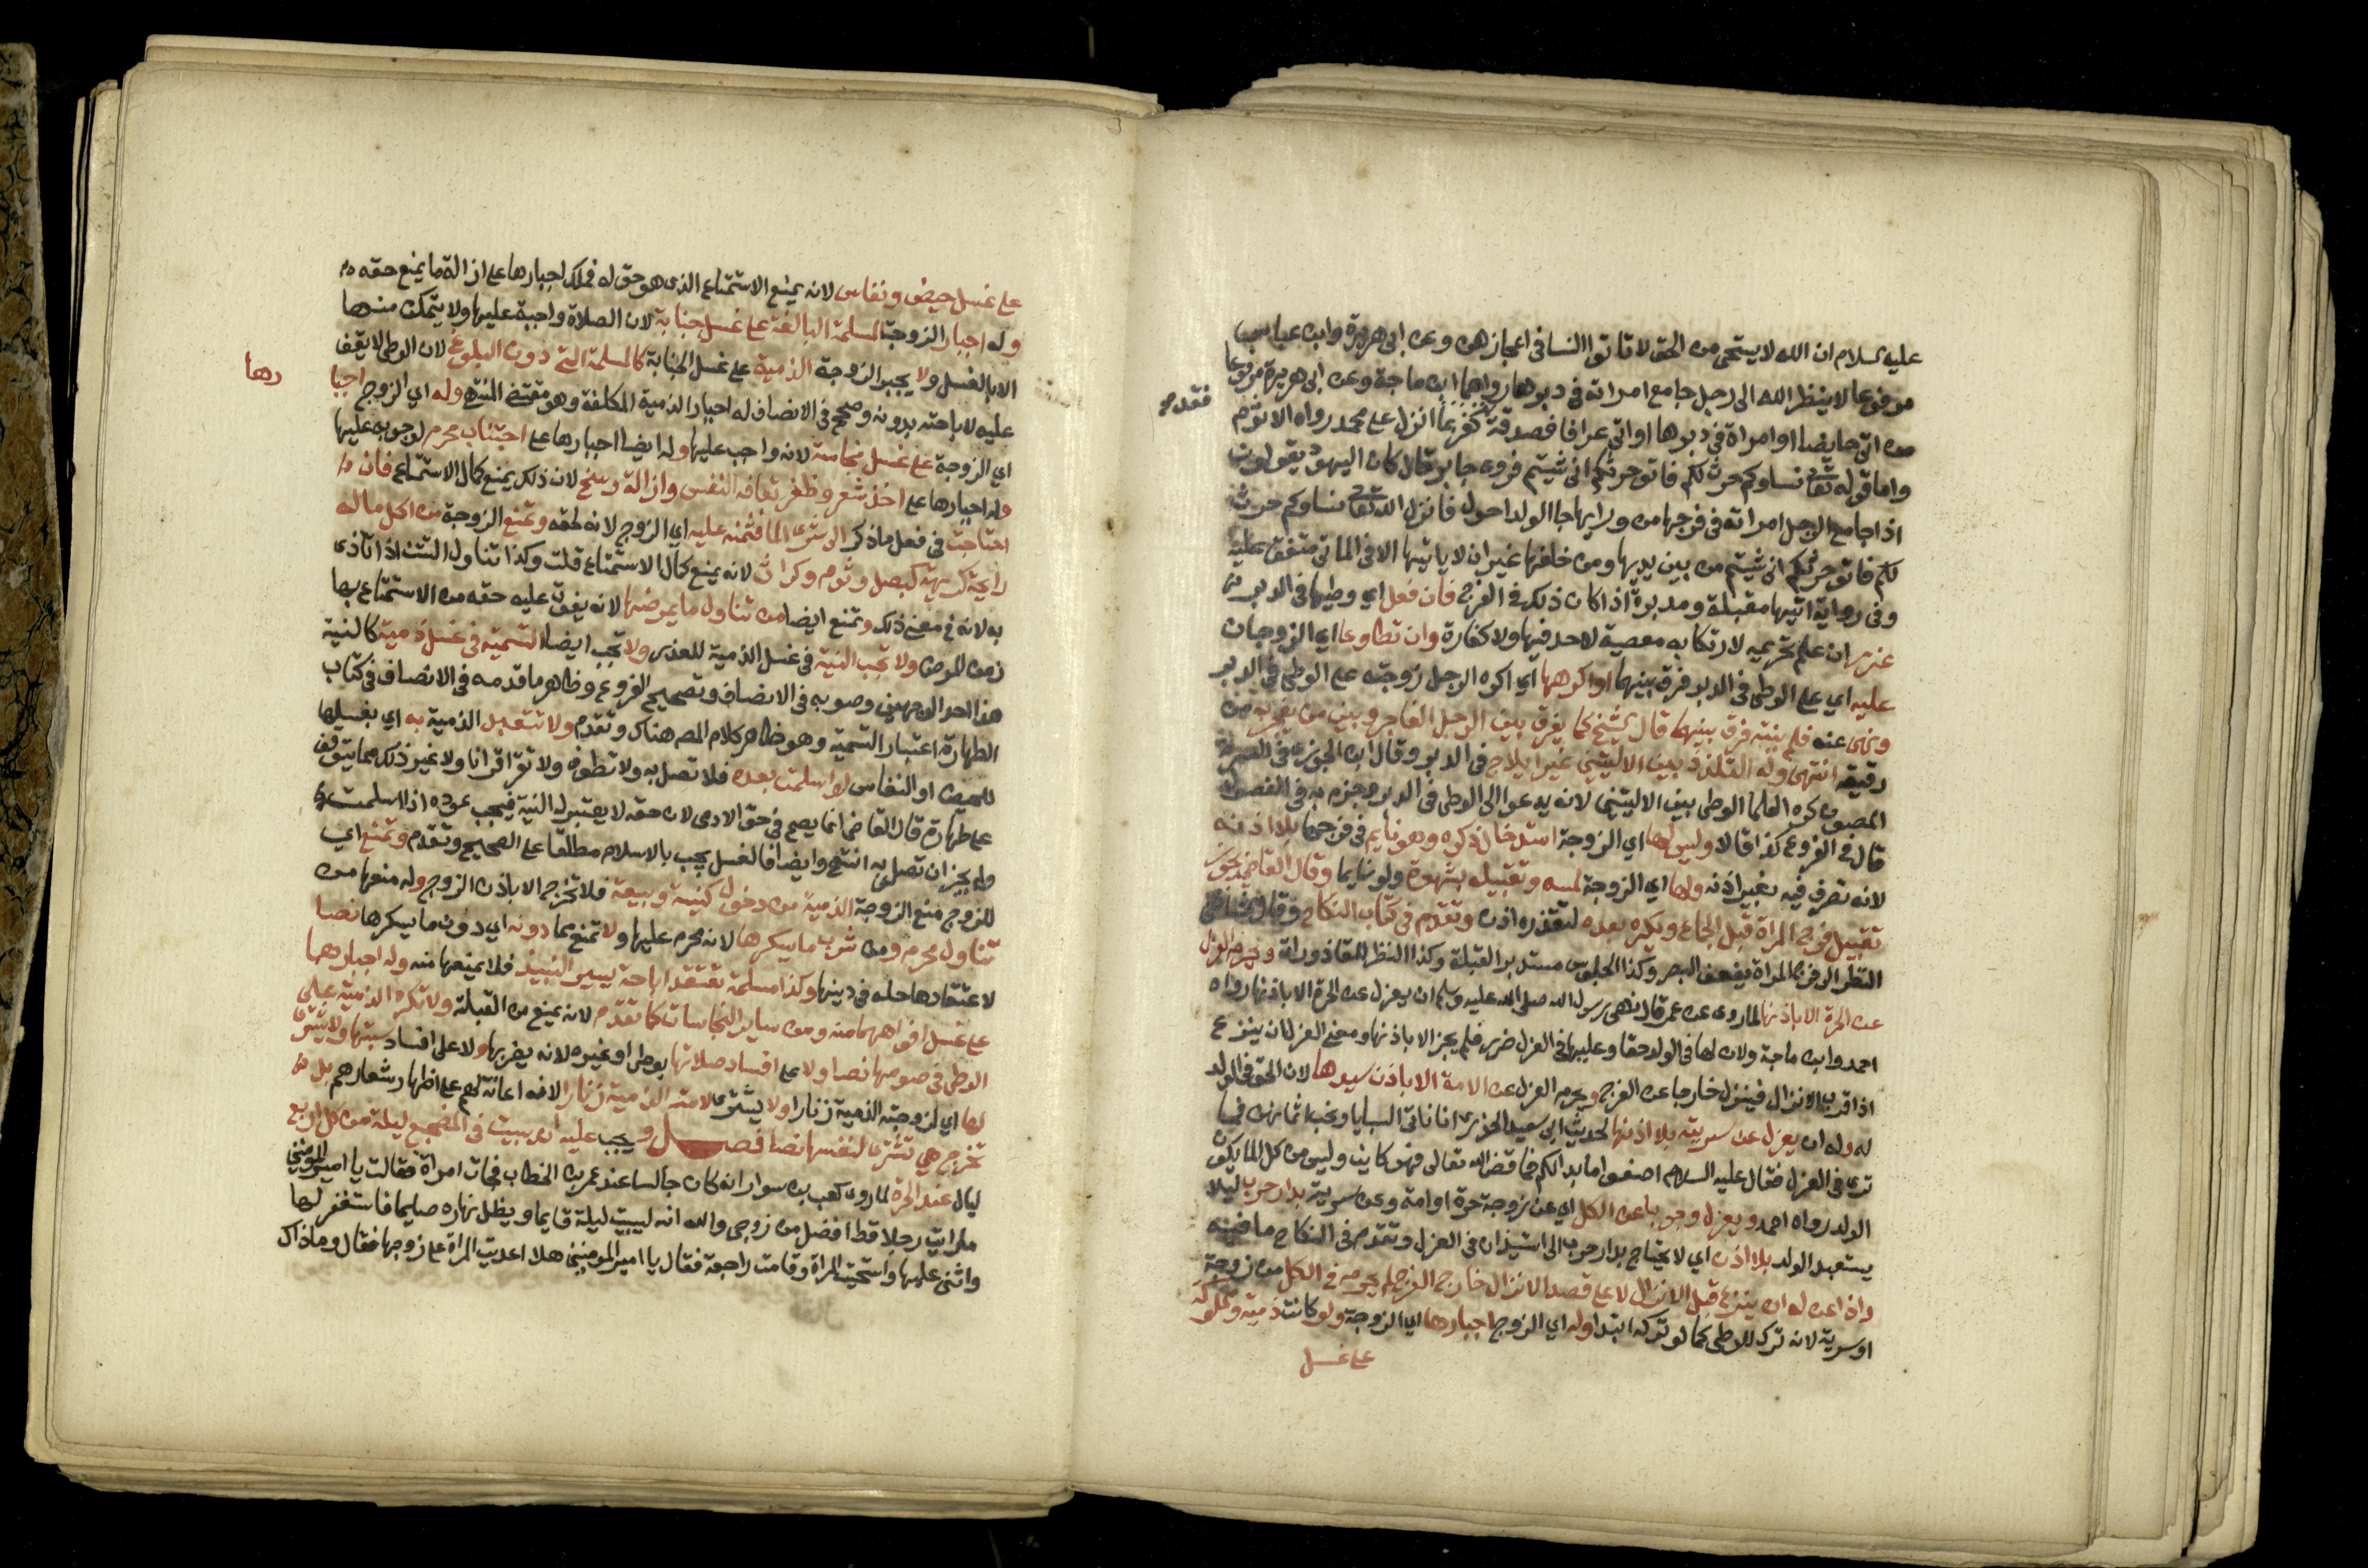 عليه السلام ان الله لا يستحي من الحق لا تاتوا النسا في اعجازهن وعن ابي هريرة وابن عباس
مرفوعا لا ينظر الله الى رجل جامع امراته في دبرها رواهما ابن ماجة وعن ابي هريرة مرفوعا
من اتى حايضا او امراة في دبرها او اتى عرافا فصدقه فقد كفر بما انزل على محمد رواه الاثرم
واما قوله تعالى نساوكم حرث لكم فاتوا حرثكم انى شيتم فروى جابر قال كان اليهود يقولون
اذا جامع الرجل امراته في فرجها من ورايها جا الولد احول فانزل الله تعالى نساوكم حرث
لكم فاتوا حرثكم انى شيتم من بين يديها ومن خلفها غير ان لا ياتيها الا في الماتى متفق عليه
وفي رواية ايتيها مقبلة ومدبرة اذا كان ذلك في الفرج فان فعل اي وطيها في الدبر
عزر ان علم تحريمه لارتكابه معصية لا حد فيها ولا كفارة وان تطاوعا اي الزوجان
عليه اي على الوطي في الدبر فرق بينهما او اكرهها اي اكره الرجل زوجته على الوطي في الدبر
ونهى عنه فلم ينته فرق بينهما قال الشيخ كما يفرق بين الرجل الفاجر وبين من يفجر به من
رقيقه انتهى وله التلذذ بين الاليتين من غير ايلاج في الدبر وقال ابن الجوزي في السر
المصون كره العلما الوطي بين الاليتين لانه يدعوا الى الوطي في الدبر وجزم به في الفصول
قال في الفروع كذا قالا وليس لها اي الزوجة استدخال ذكره وهو نايم في فرجها بلا اذنه
لانه تصرف فيه بغير اذنه ولها اي الزوجة لمسه وتقبيله بشهوة ولو نايما وقال القاضي يجوز
تقبيل فرج المراة قبل الجماع ويكره بعده لتعذره اذن وتقدم في كتاب النكاح وقال
النظر الى فرج المراة يضعف البصر وكذا الجلوس مستدبر القبلة وكذا النظر للقاذورات ويحرم العزل
عن الحرة الا باذنها لما روي عن عمر قال نهى رسول الله صلى الله عليه وسلم ان يعزل عن الحرة الا باذنها رواه
احمد وابن ماجة ولان لها في الولد حقا وعليها في العزل ضرر فلم يجز الا باذنها ومعنى العزل ان ينزع
اذا قرب الانزال فينزل خارجا عن الفرج ويحرم العزل عن الامة الا باذن سيدها لان الحق في الولد
له وله ان يعزل عن سريته بلا اذنها لحديث ابي سعيد الخدري انا ناتي السبايا ونحب اثمانهن فما
ترى في العزل فقال عليه السلام اصنعوا ما بدا لكم فما قضى الله تعالى فهو كاين وليس من كل الما يكون
الولد رواه احمد ويعزل وجوبا عن الكل اي عن زوجة حرة او امة وعن سرية بدار حرب ليلا
يستعبد الولد بلا اذن اي لا يحتاج بدار حرب الى استيذان في العزل وتقدم في النكاح ما فيه
واذا عن له ان ينزع قبل الانزال لا على قصد الانزال خارج الفرج لم يحرم في الكل من زوجة
او سرية لانه ترك للوطي كما لو تركه ابتدا وله اي الزوج اجبارها اي الزوجة ولو كانت ذمية ومملوكة
على غسل
على غسل حيض ونفاس لانه يمنع الاستمتاع الذي هو حق له فملك اجبارها على ازالة ما يمنع حقه
وله اجبار الزوجة المسلمة البالغة على غسل جنابة لان الصلاة واجبة عليها ولا يتمكن منها
الا بالغسل ولا يجبر الزوجة الذمية على غسل الجنابة كالمسلمة التي دون البلوغ لان الوطي لا يقف
عليه لاباحته بدونه وصحح في الانصاف له اجبار الذمية المكلفة وهو مقتضى المنتهى وله اي الزوج اجبا
رها
اي الزوجة على غسل نجاسة لانه واجب عليها وله ايضا اجبارها على اجتناب محرم لوجوبه عليها
وله اجبارها على اخذ شعر وظفر تعافه النفس وازالة وسخ لان ذلك يمنع كمال الاستمتاع فان
احتاجت في فعل ما ذكر الى شرى الما فثمنه عليه اي الزوج لانه لحقه وتمنع الزوجة من اكل ما له
رايحة كريهة كبصل وثوم وكراث لانه يمنع كمال الاستمتاع قلت وكذا تناول التتن اذا تاذى
به لانه في معنى ذلك وتمنع ايضا من تناول ما يمرضها لانه يفوت عليه حقه من الاستمتاع بها
زمن المرض ولا تجب النية في غسل الذمية للعذر ولا تجب ايضا التسمية في غسل ذمية كالنية
هذا احد الوجهين وصوبه في الانصاف وتصحيح الفروع وظاهر ما قدمه في الانصاف في كتاب
الطهارة اعتبار التسمية وهو ظاهر كلام المص هناك وتقدم ولا تتعبد الذمية به اي بغسلها
للحيض او النفاس لو اسلمت بعده فلا تصل به ولا تطوف ولا تقرا قرانا ولا غير ذلك مما يتوقف
على طهارة قال القاضي انما يصح في حق الادمي لان حقه لا يعتبر له النية فيجب عوده اذا اسلمت
ولم يجز ان تصلي به انتهى وايضا فالغسل يجب بالاسلام مطلقا على الصحيح وتقدم وتمنع اي
للزوج منع الزوجة الذمية من دخول كنيسة وبيعة فلا تخرج الا باذن الزوج وله منعها من
تناول محرم ومن شرب ما يسكرها لانه محرم عليها ولا تمنع مما دونه اي دون ما يسكرها نصا
لاعتقادها حله في دينها وكذا مسلمة تعتقد اباحة يسير النبيذ فلا يمنعها منه وله اجبارها
على غسل افواههما منه ومن ساير النجاسات كما تقدم لانه يمنع من القبلة ولا تكره الذمية على
الوطي في صومها نصا ولا على افساد صلاتها بوطي او غيره لانه يضر بها ولا على افساد سبتها ولا يشتري
لها اي لزوجته الذمية زنارا ولا يشتري لامته الذمية زنارا لانه اعانة لهم على اظهار شعارهم بل
تخرج هي تشتري لنفسها نصا فصـــل ويجب عليه ان يبيت في المضجع ليلة من كل اربع
ليال عند الحرة لما روى كعب بن سوار انه كان جالسا عند عمر بن الخطاب فجات امراة فقالت يا امير المومنين
ما رايت رجلا قط افضل من زوجي والله انه ليبيت ليلة قايما ويظل نهاره صايما فاستغفر لها
واثنى عليها واستحيت المراة وقامت راجعة فقال يا امير المومنين هلا اعديت المراة على زوجها فقال وما ذاك